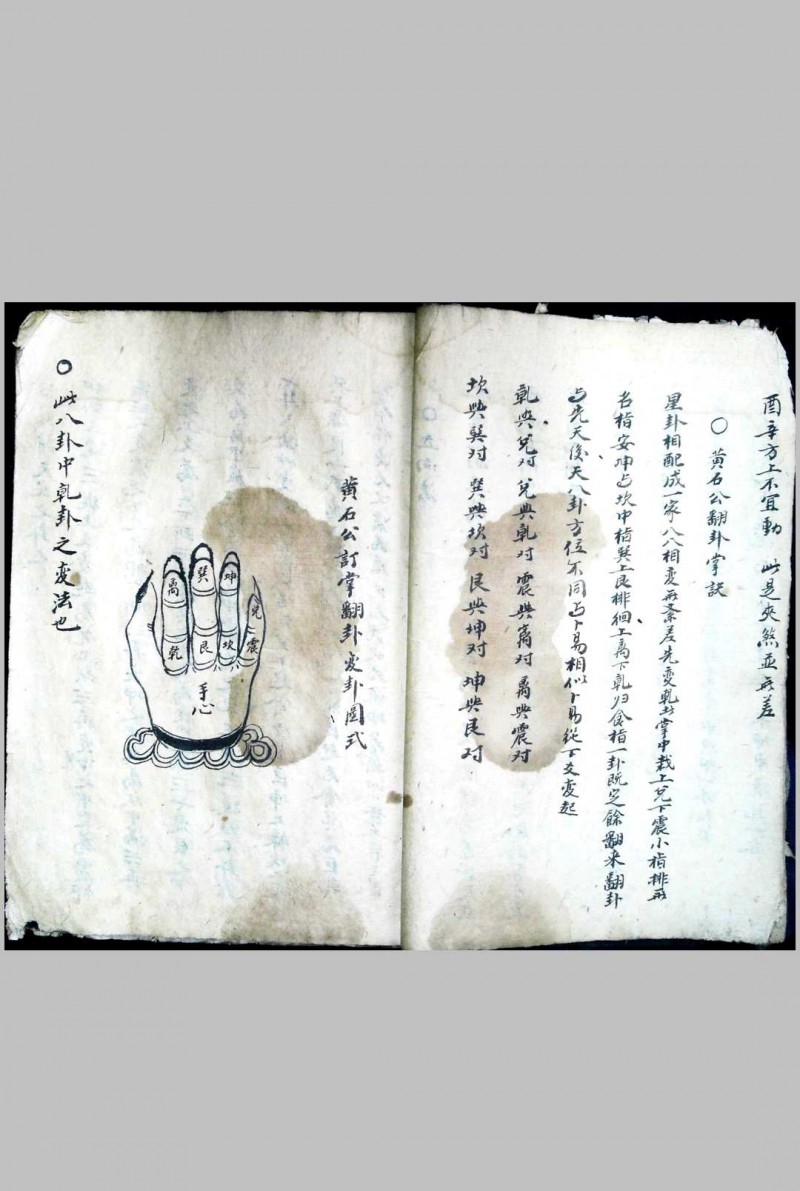 酉辛方上不宜動 此是夾煞並无差
〇 黃石公翻卦掌訣
星卦相配成一家八八相変无紊差先变乾卦掌中裁上兌下震小指排无
名指安坤与坎中指巽上艮排徊上离下乾归食指一卦既定餘翻来翻卦
与先天後天八卦方位不同与卜易相似卜易從下爻变起
乾與兌对 兌與乾对 震與离对 离與震对
坎與巽对 巽與坎对 艮與坤对 坤與艮对
黃石公訂掌翻卦变卦圖式
兌
震
坤
坎
巽
艮
离
乾
手心
〇 此八卦中乾卦之变法也